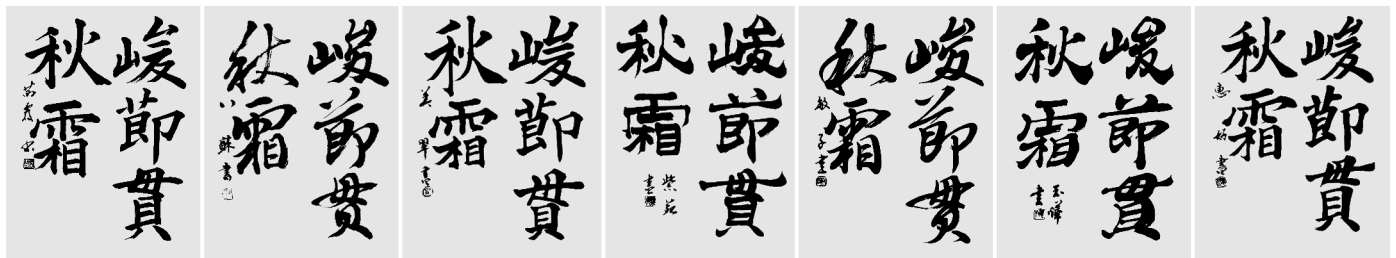 峻節貫
秋霜
峻節貫
秋霜
八穌書
峻節貫
秋霜
美翠書
峻節貫
秋霜
紫苑
書
峻節貫
秋霜
敏子書
峻節貫
秋霜
玉峰
書
峻節貫
秋霜
惠
書